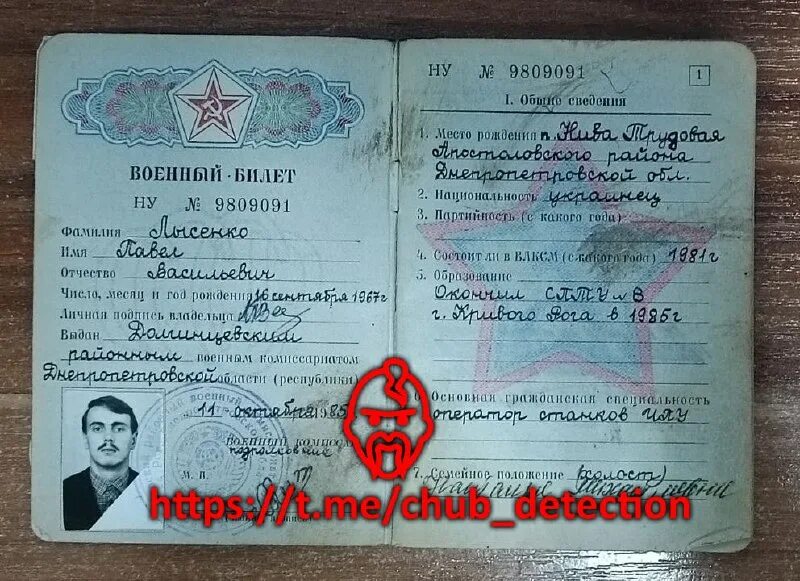 ВОЕННЫЙ БИЛЕТ
НУ № 9809091
Фамилия Лысенко
Имя Павел
Отчество Васильевич
Число, месяц и год рождения 16 сентября 1967г
Личная подпись владельца
Выдан Долгинцевским
районным военным комиссариатом
Днепропетровской области (республики)
11 октября 1985
военный комиссар
подполковник
М. П.
НУ № 9809091
1
I. Общие сведения
1. Место рождения п. Нива Трудовая
Апостоловского района
Днепропетровской обл.
2. Национальность украинец
3. Партийность (с какого года)
4. Состоит ли в ВЛКСМ (с какого года) 1981г
5. Образование
Окончил СПТУ
г. Кривого Рога в 1985г
6. Основная гражданская специальность
оператор станков
7. Семейное положение (холост)
https://t.me/chub_detection